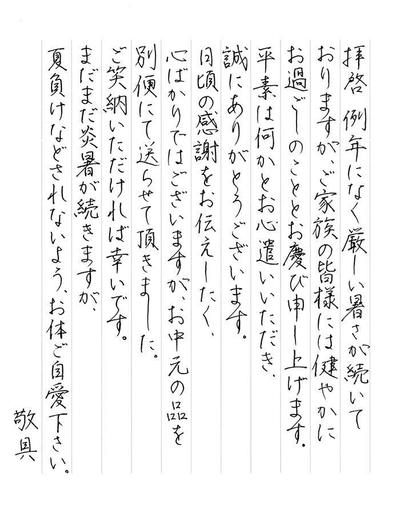 拝啓 例年になく厳しい暑さが続いて
おりますが、ご家族の皆様には健やかに
お過ごしのこととお慶び申し上げます。
平素は何かとお心遣いいただき、
誠にありがとうございます。
日頃の感謝をお伝えしたく、
心ばかりではございますが、お中元の品を
別便にて送らせて頂きました。
ご笑納いただければ幸いです。
まだまだ炎暑が続きますが、
夏負けなどされないよう、お体ご自愛下さい。
敬具